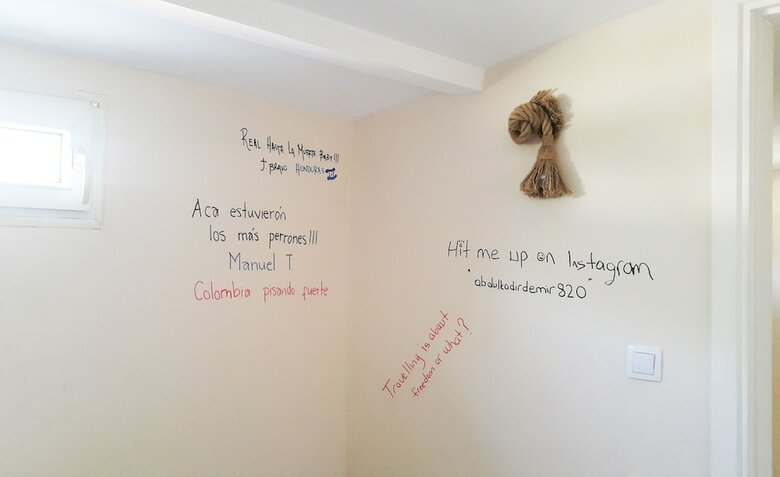 REAL HASTA LA MUERTE BABY!!!
J. BRAVO HONDURAS
Aca estuvierón
los más perrones!!!
Manuel T.
Colombia pisando fuerte
Hit me up on Instagram
"abdulkadirdemir820"
Travelling is about
freedom or what?